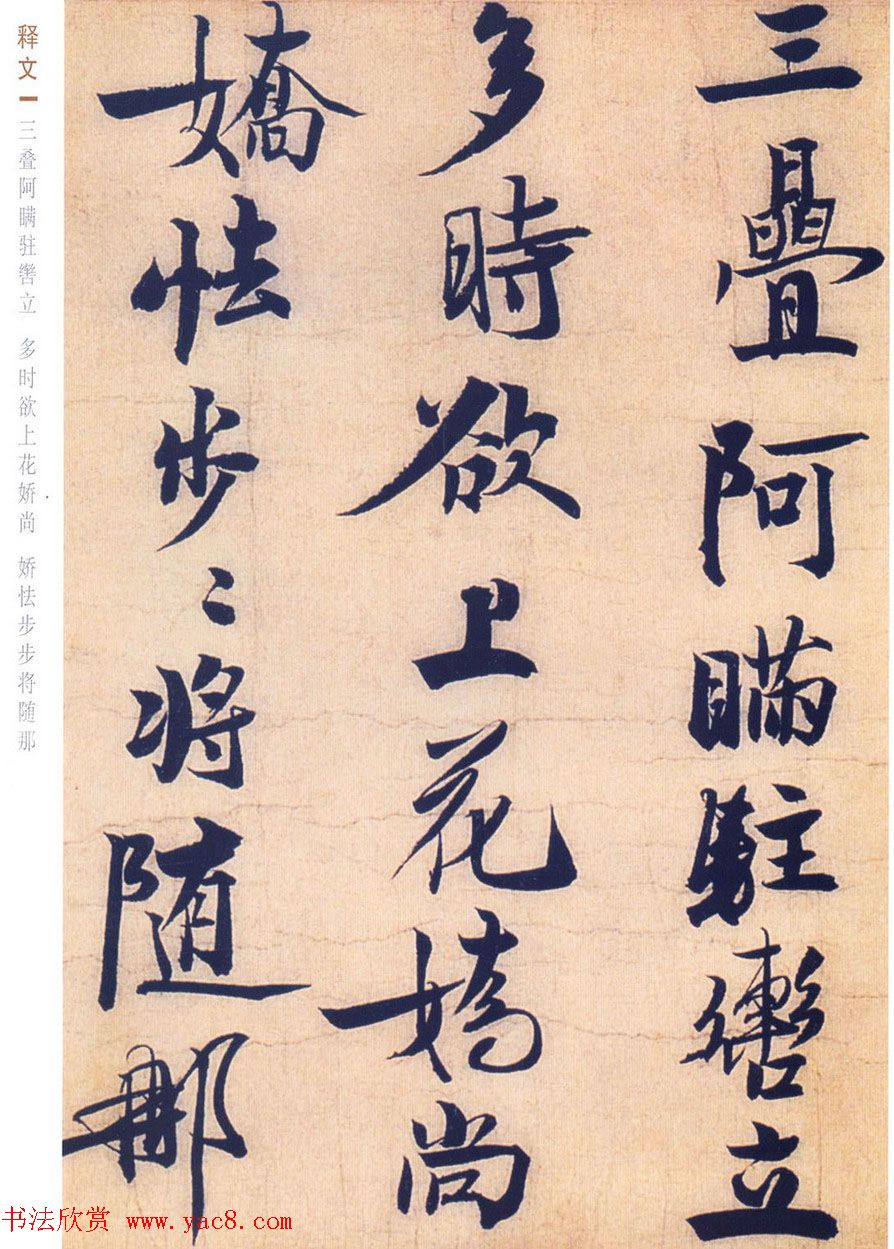 三疊阿瞞駐轡立
多時欲上花嬌尚
嬌怯步〻将随那
释文
三叠阿瞒驻辔立 多时欲上花娇尚 娇怯步步将随那
书法欣赏 www.yac8.com